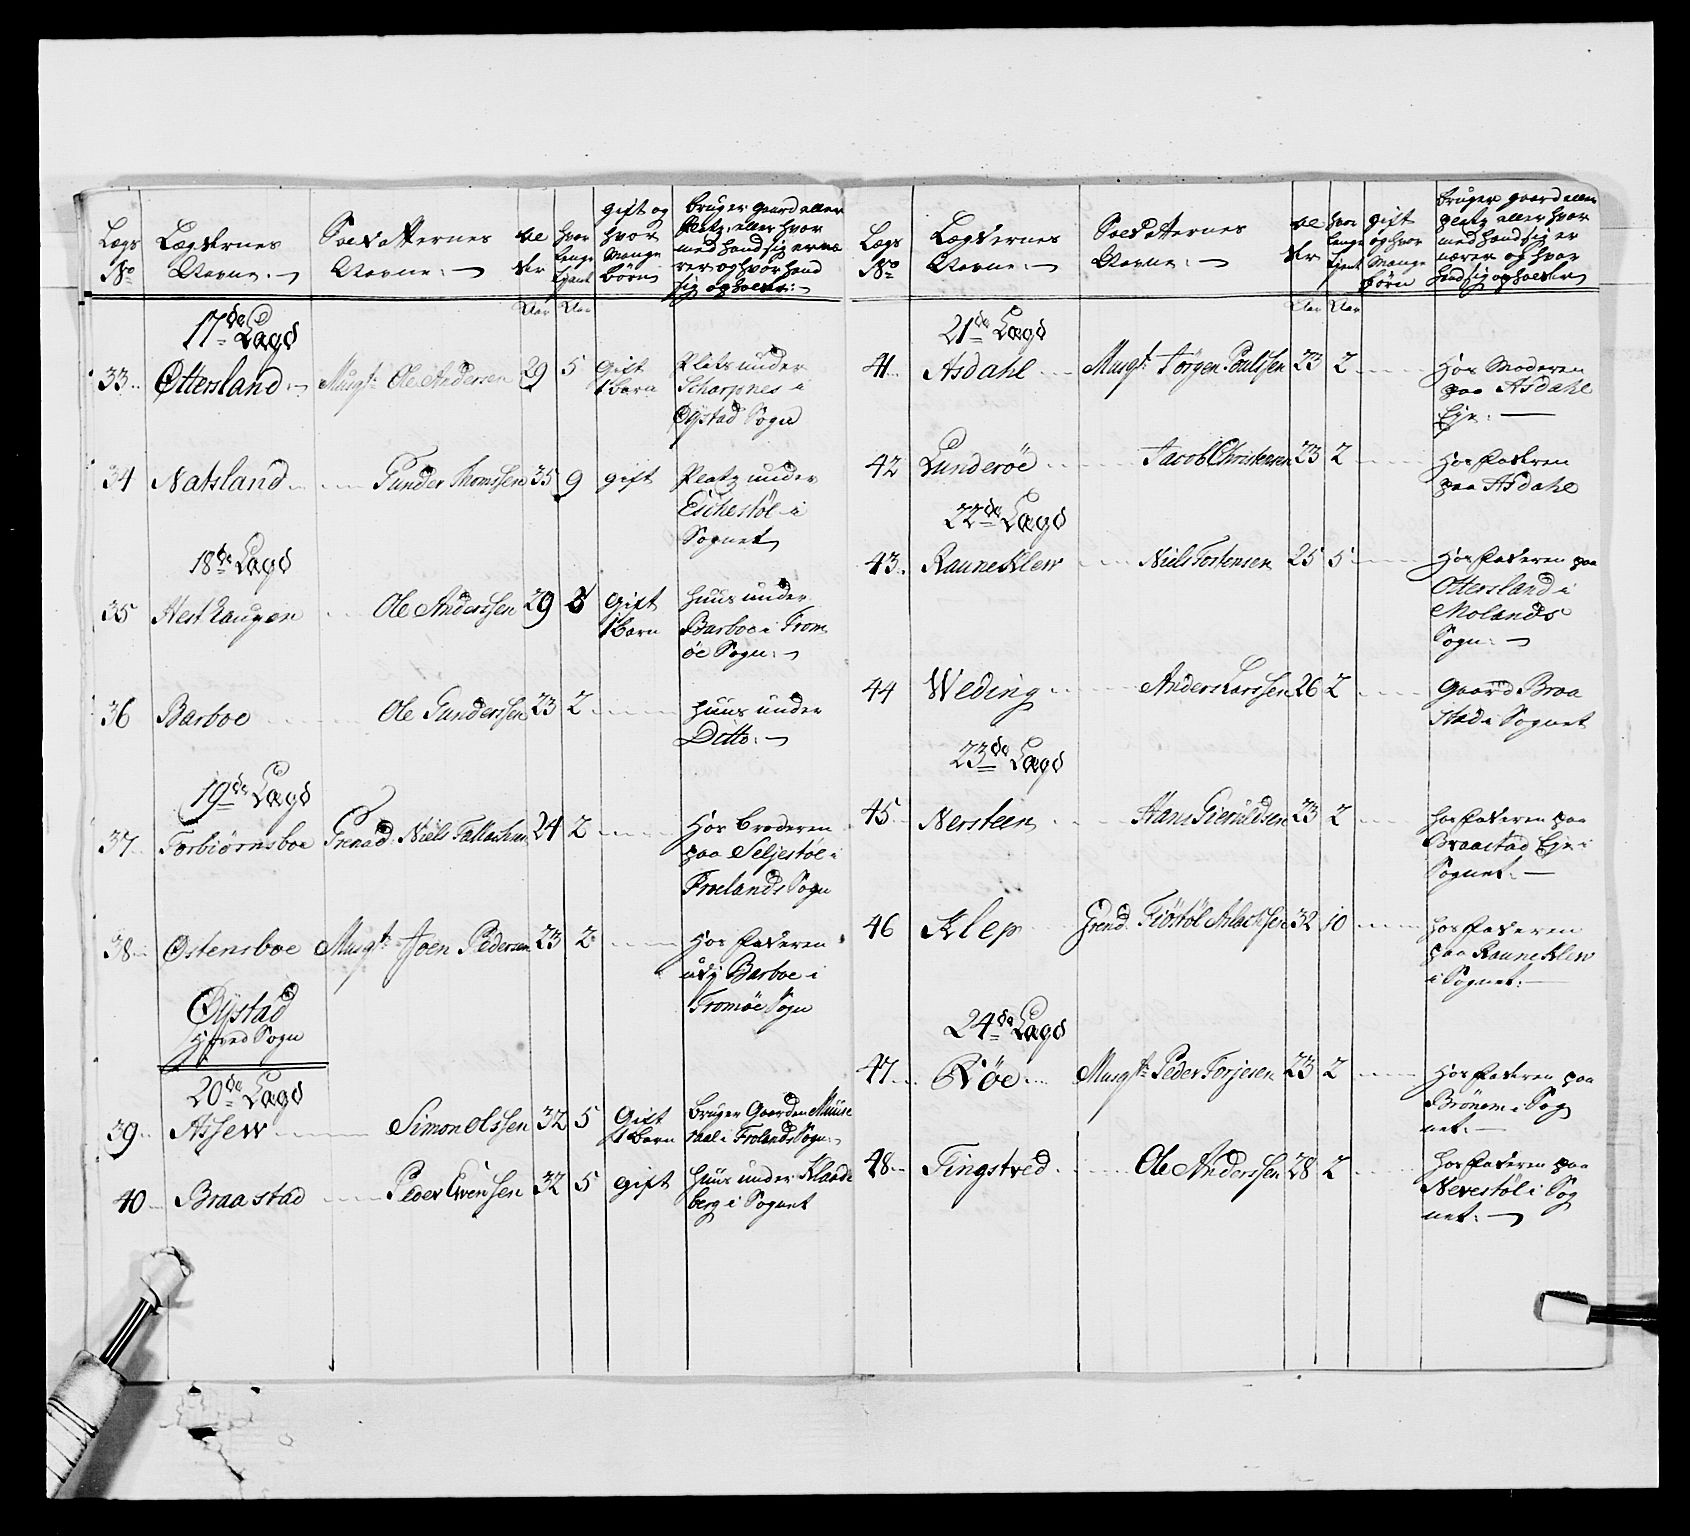 Lægs No
Lægdernes Navne:
Soldatternes Navne:
Al der
hvor lenge tjent
gift og hvor Mange Børn
bruger gaard eller Platz, eller hvor med hand sig ernæ rer og hvor hand sig opholder:
Aar Aar
17de Lægd
33 Ottersland Musqt: Ole Andersen 29 5 Gift 1 Barn Plads under Scharpnes i Øystad Sogn
34 Natsland Gunder Thomssen 35 9 gift Platz under Eschestøl i Sognet
18de Lægd
35 Hesthaugen Ole Anderssen 29 8 Gift 1 Barn Huus under Barboe i Trom øe Sogn:
36 Barboe Ole Gunderssen 23 2 Huus under Ditto:
19de Lægd
37 Torbiørnsboe Grenad. Niels Tallachsen 24 2 Hos Broderen paa Seljestøl i Froelands Sogn
38 Østensboe Musqt: Joen Pedersen 23 2 Hos Faderen udj Barboe i Tromøe Sogn
Øystad
Hoved Sogn
20de Lægd
39 Assew Simon Olssen 32 5 Gift 1 Barn bruger Gaarden Miuse raal i Frolands Sogn:
40 Braastad Peder Evenssen 32 5 gift Huus under Klaade berg i Sognet
Lægs No
Lægdernes Navne:
Soldatternes Navne:
Al der
hvor lenge tjent
gift og hvor Mange Børn
bruger gaard eller platz eller hvor med hand sig er nærer og hvor hand sig opholder
Aar Aar
21de Lægd
41 Asdahl Musqt. Jørgen Poulssen 23 2 Hos Moderen paa Asdahl Eje:
42 Lunderøe Jacob Christensen 23 2 Hos Faderen paa Asdahl
22de Lægd
43 Rauneklew Niels Tostensen 25 5 Hos Faderen paa Ottersland i Molands Sogn:
44 Weding Anders Larssen 26 2 Gaard Braa stad i Sognet
23de Lægd
45 Nersteen Hans Gieruldsen 23 2 hos Faderen paa Braastad Eje i Sognet:
46 Klep Grend. Tiøstøl Aslachsen 32 10 hos Faderen paa Rauneklew i Sognet:
24de Lægd
47 Røe Musqt: Peder Torjesen 23 2 Hos Faderen paa Brønom i Sog net:
48 Tingstved Ole Anderssen 28 2 hos Faderen paa Nevestøl i Sog net: